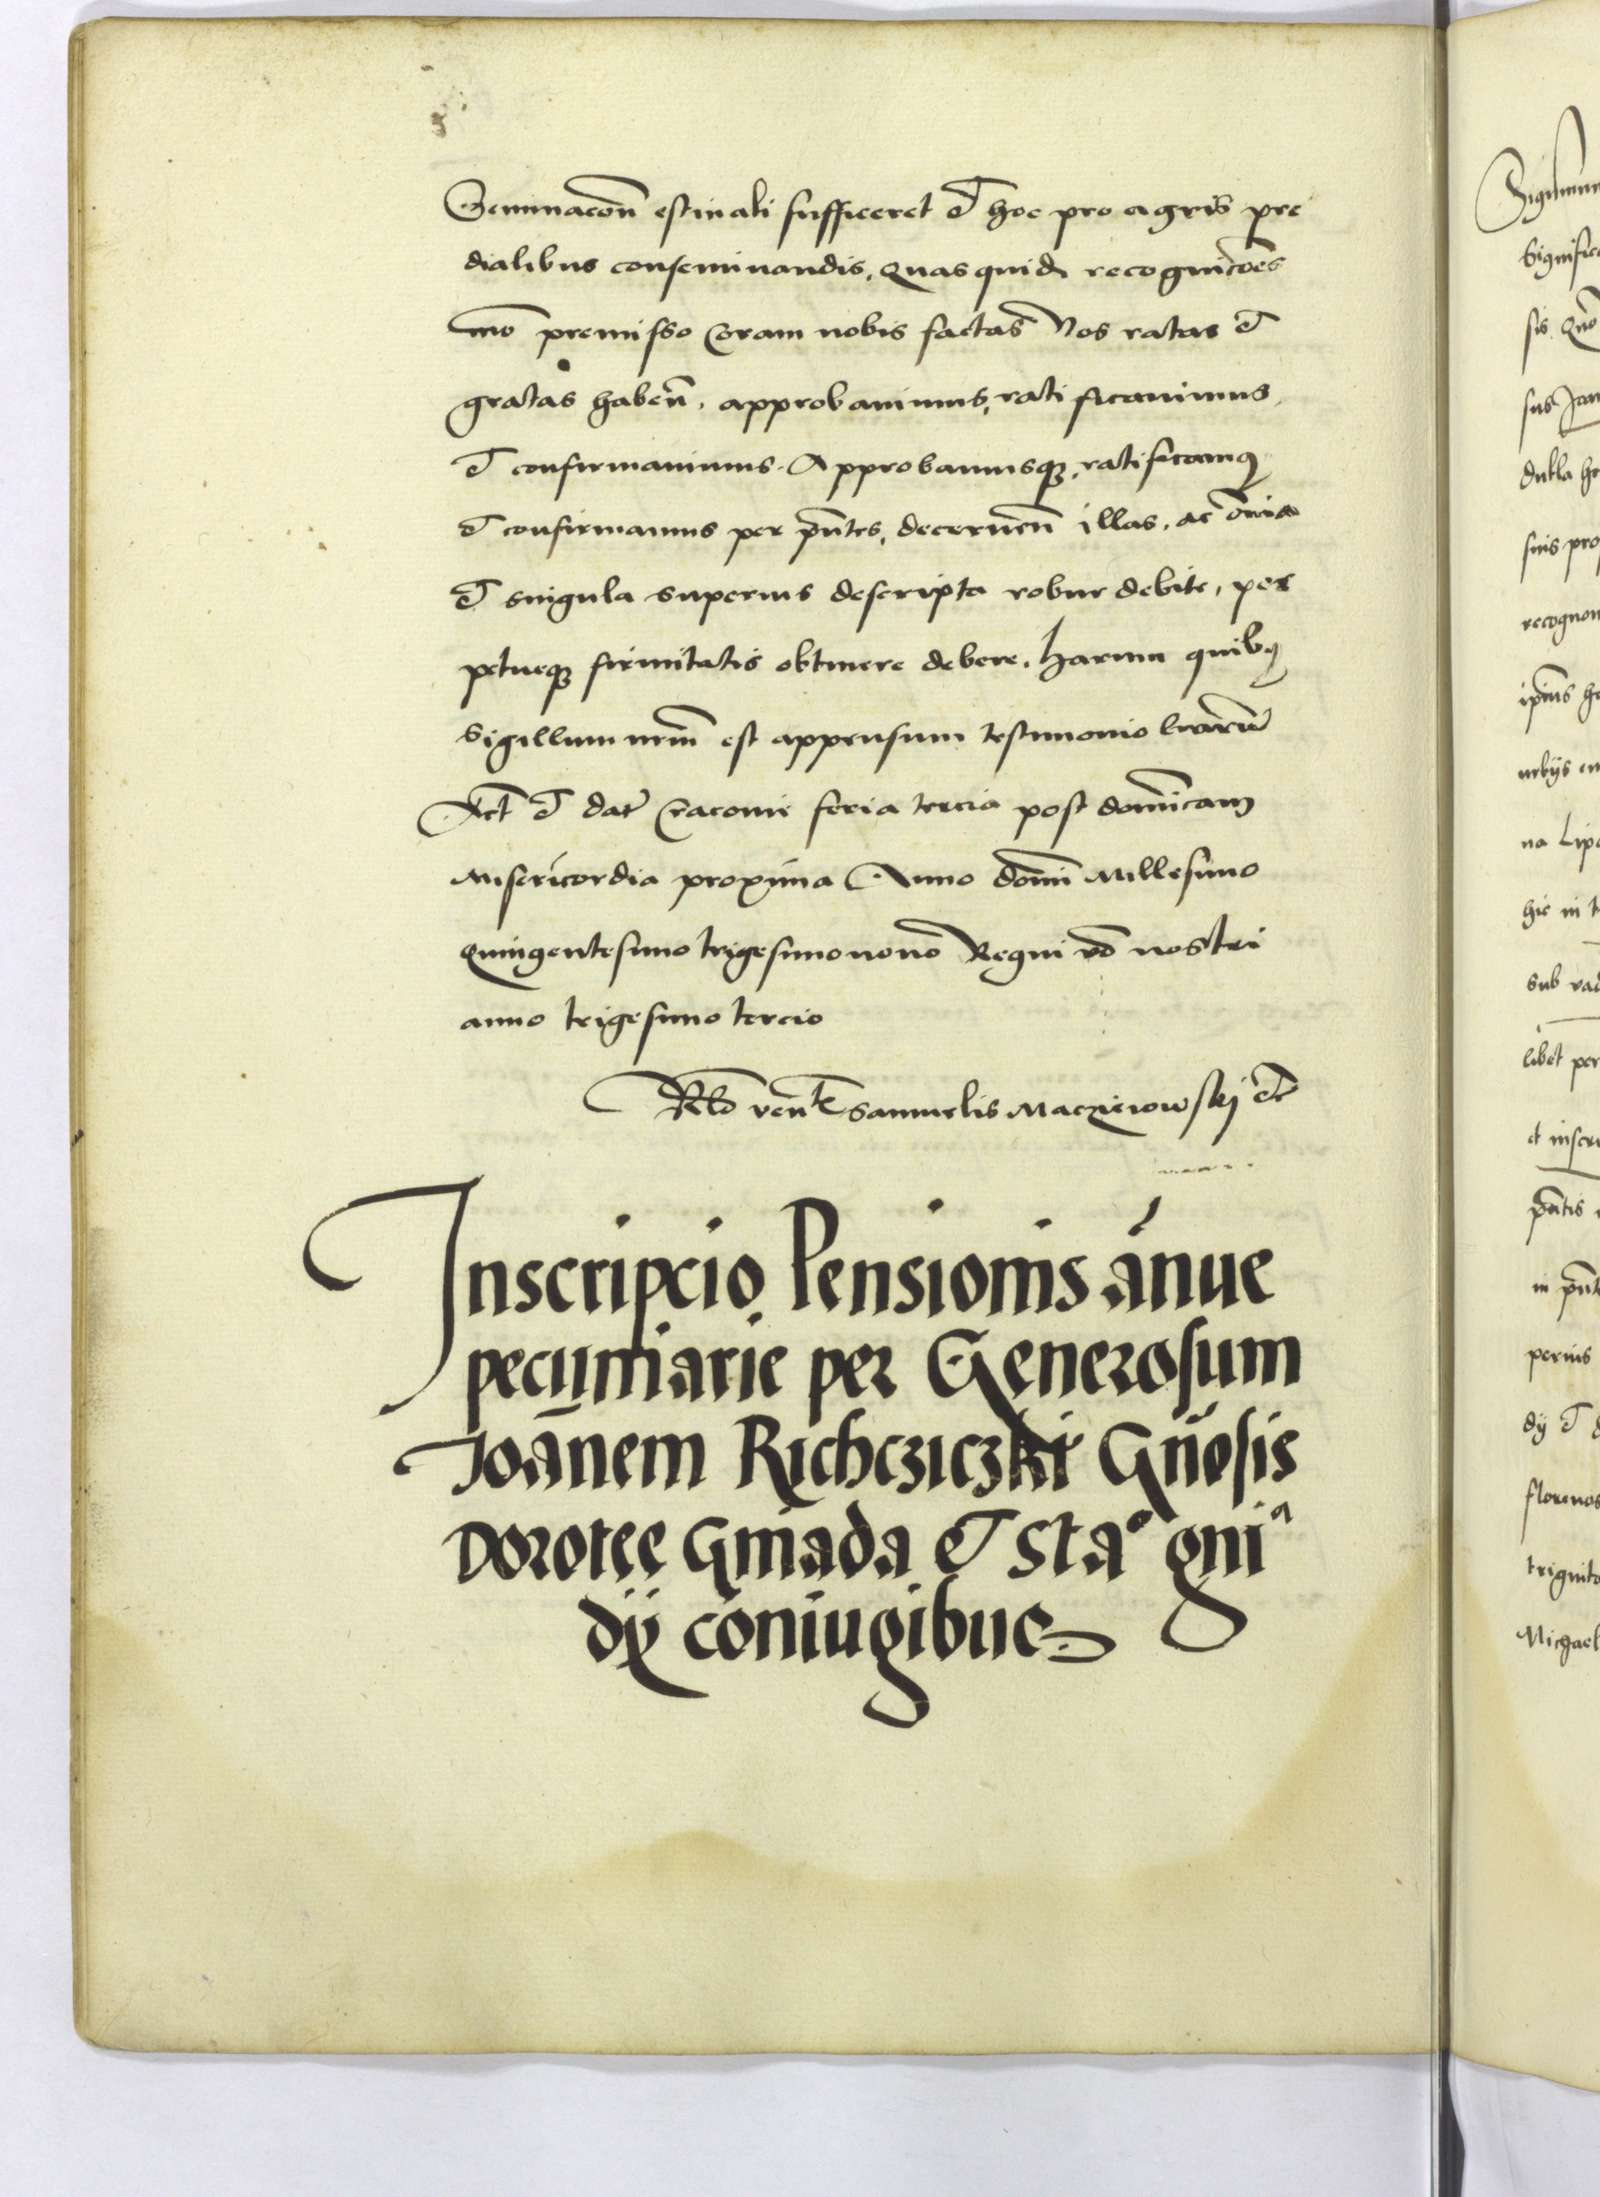 Seminacōn estivali sufficeret et hoc pro agris pre
dialibus conseminandis. Quas quidē recognicōes
mō premisso Coram nobis factas Nos ratas et
gratas habeñ. approbavimus, ratificavimus
et confirmavimus. Approbamusqꝫ, ratificamꝰ
et confirmamus per p̄ntes, decerneñ illas, ac om̄ia
et singula superius descripta robur debite, per
petueqꝫ firmitatis obtinere debere, harum quibꝰ
Sigillum nr̄m est appensum testimonio lr̄arū
Act̄ et dat̄ Cracovie feria tercia post dominicam
Misericordia proxima Anno domī Millesimo
Quingentesimo trigesimo nono Regni vō nostri
anno trigesimo tercio
Samuelis Maczieiowskj etc
Inscripcio Pensionis ānue
pecuniarie per Generosum
Joānem Richcziczki Gn̄osis
Dorotee Gniada et Sta° gni
dÿ coniugibus
Sigismun
Significa
sis. Quō
sus Jan
dukla he
suis pro
recognov
ip̄ius he
na Lipo
hic in t
sub vad
libet per
et inscri
p̄ntis
in p̄nt
perius
dÿ et d
florenos
triginta
Michael